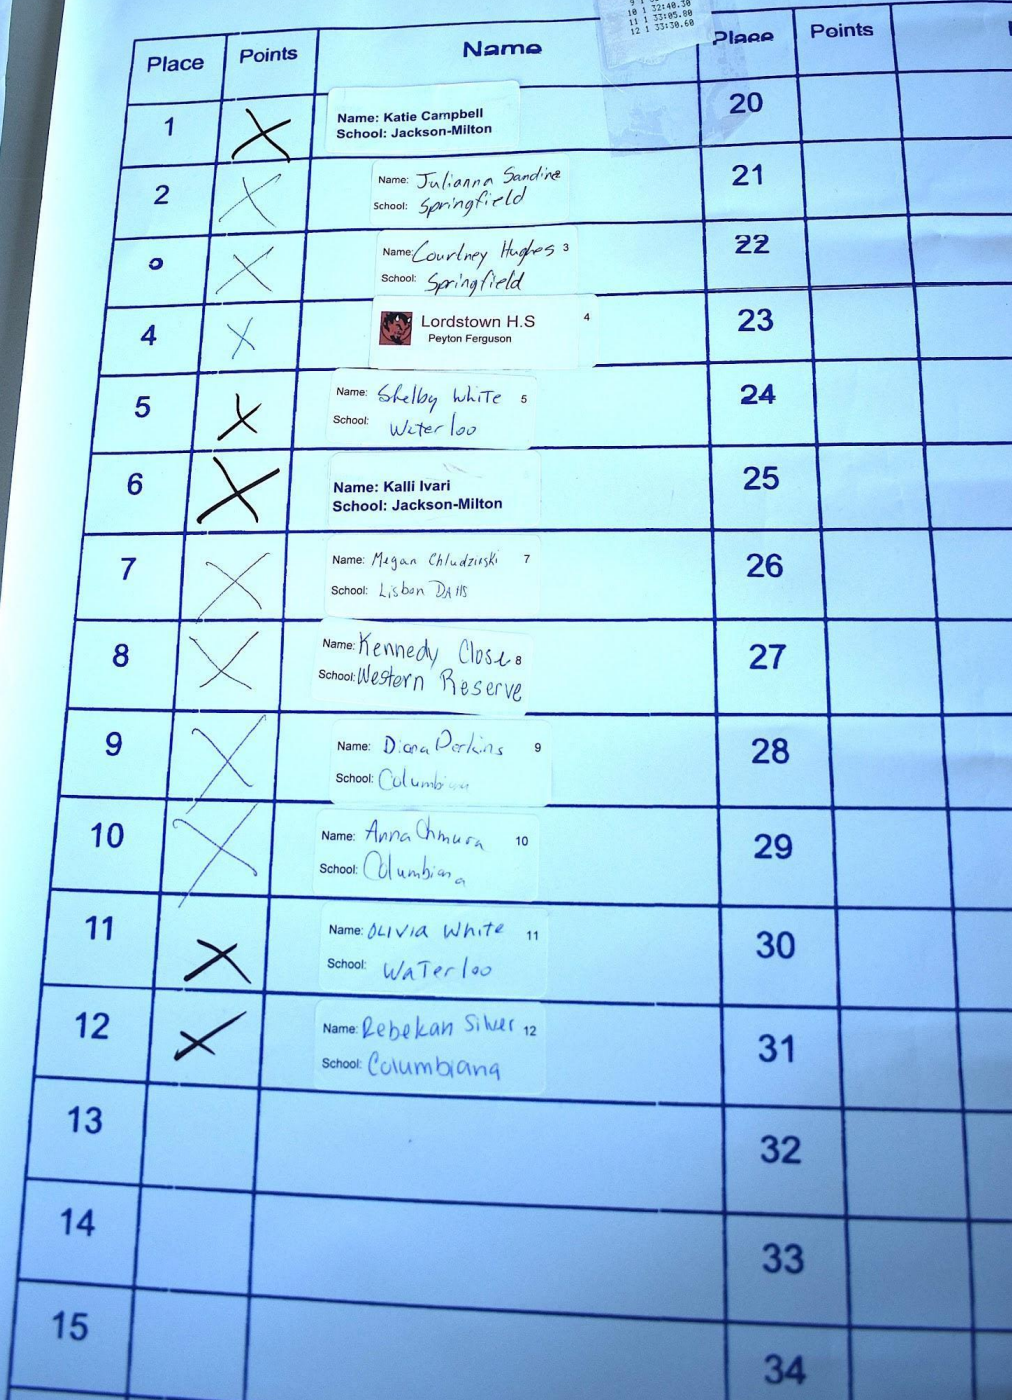 10 1 32:40.30
11 1 33:05.80
12 1 33:30.60
Place Points Name Place Points
1 Name: Katie Campbell
School: Jackson-Milton
20
2 Name: Julianna Sandine
School: Springfield
21
Name: Courtney Hughes 3
School: Springfield
22
4 Lordstown H.S 4
Peyton Ferguson
23
5 Name: Shelby White 5
School: Waterloo
24
6 Name: Kalli Ivari
School: Jackson-Milton
25
7 Name: Megan Chludzinski 7
School: Lisbon DAHS
26
8 Name: Kennedy Close 8
School: Western Reserve
27
9 Name: Diana Perkins 9
School: Columbiana
28
10 Name: Anna Chmura 10
School: Columbiana
29
11 Name: OLIVIA White 11
School: WaTerloo
30
12 Name: Rebekah Silver 12
School: Columbiana
31
13 32
14 33
15 34